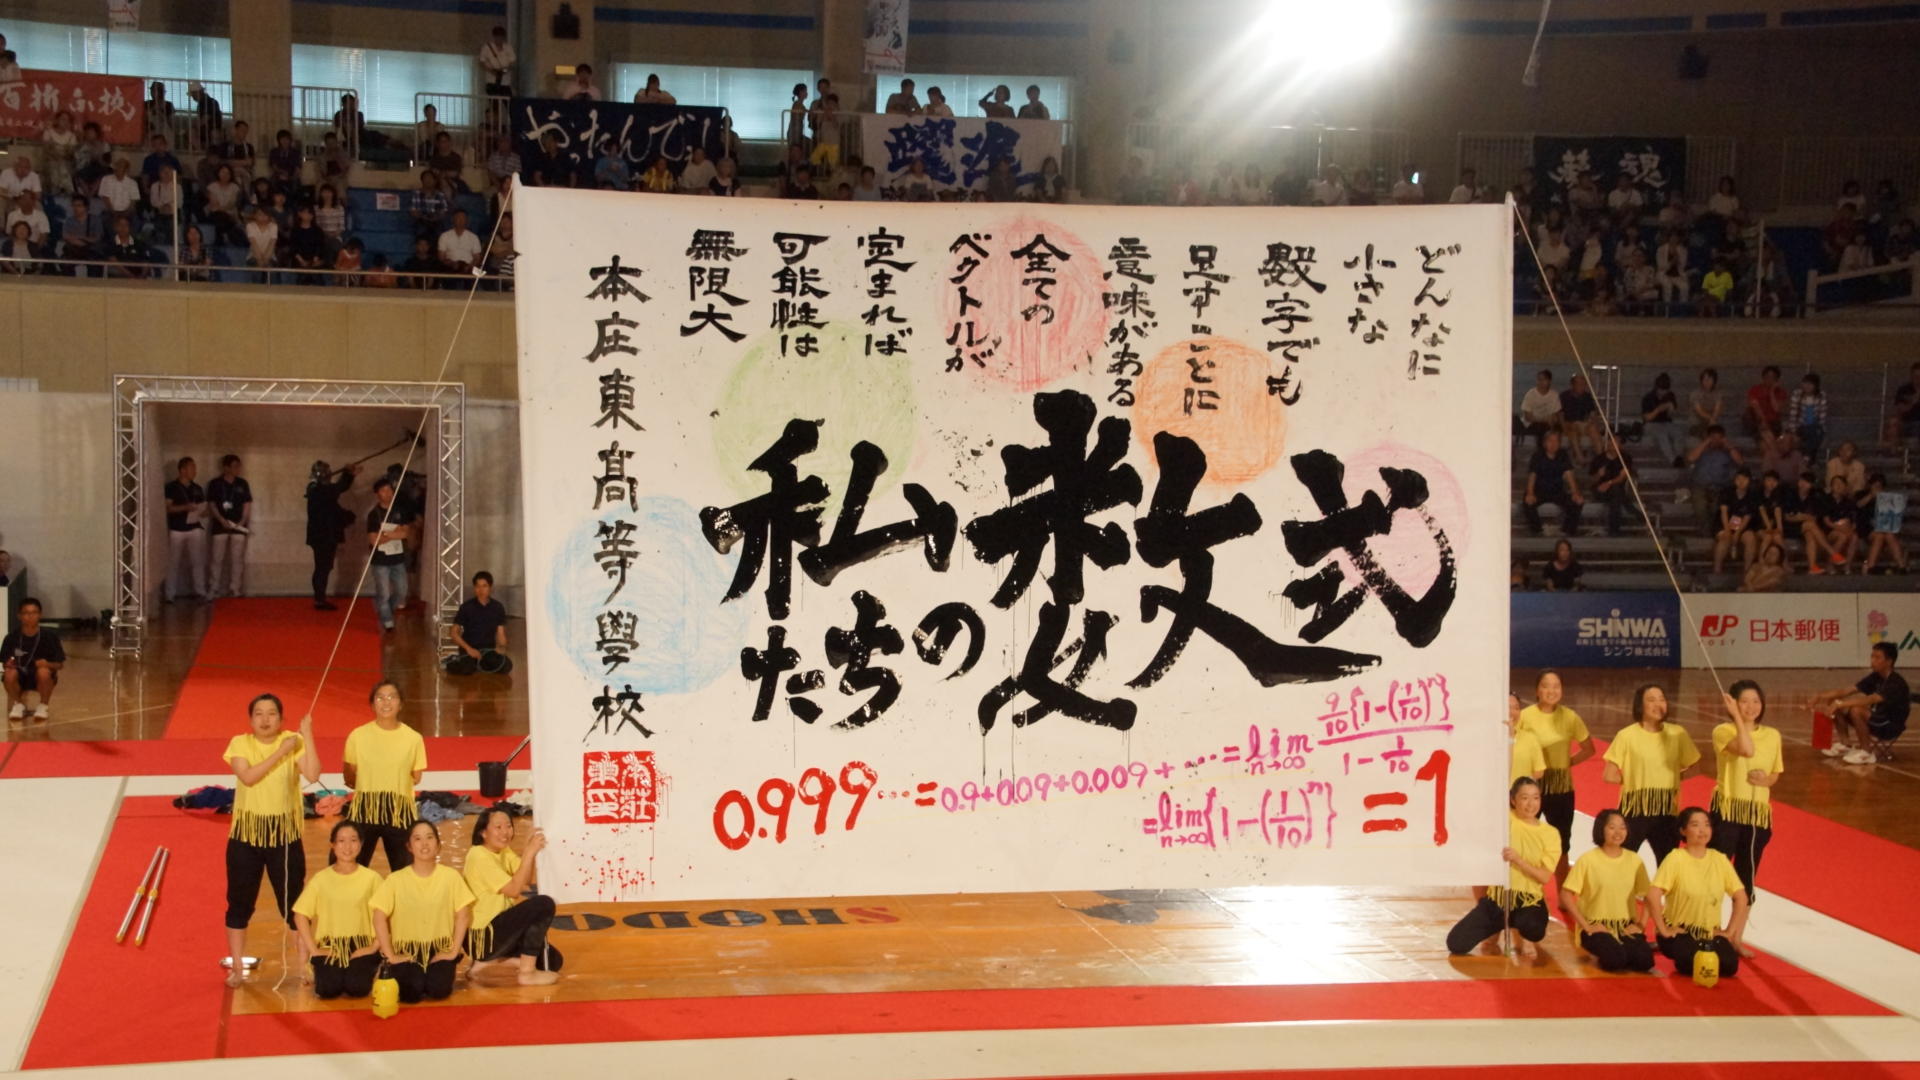 百折不撓
やったんでぃ!!
躍進
魂
どんなに
小さな
数字でも
足すことに
意味がある
全ての
ベクトルが
定まれば
可能性は
無限大
私たちの数式
本庄東高等學校
0.999…=0.9+0.09+0.009+……=lim n→∞ 9/10{1-(1/10)^n}/1-1/10
=lim n→∞{1-(1/10)^n}=1
SHINWA
シンワ株式会社
JP POST 日本郵便
JA
SHODO